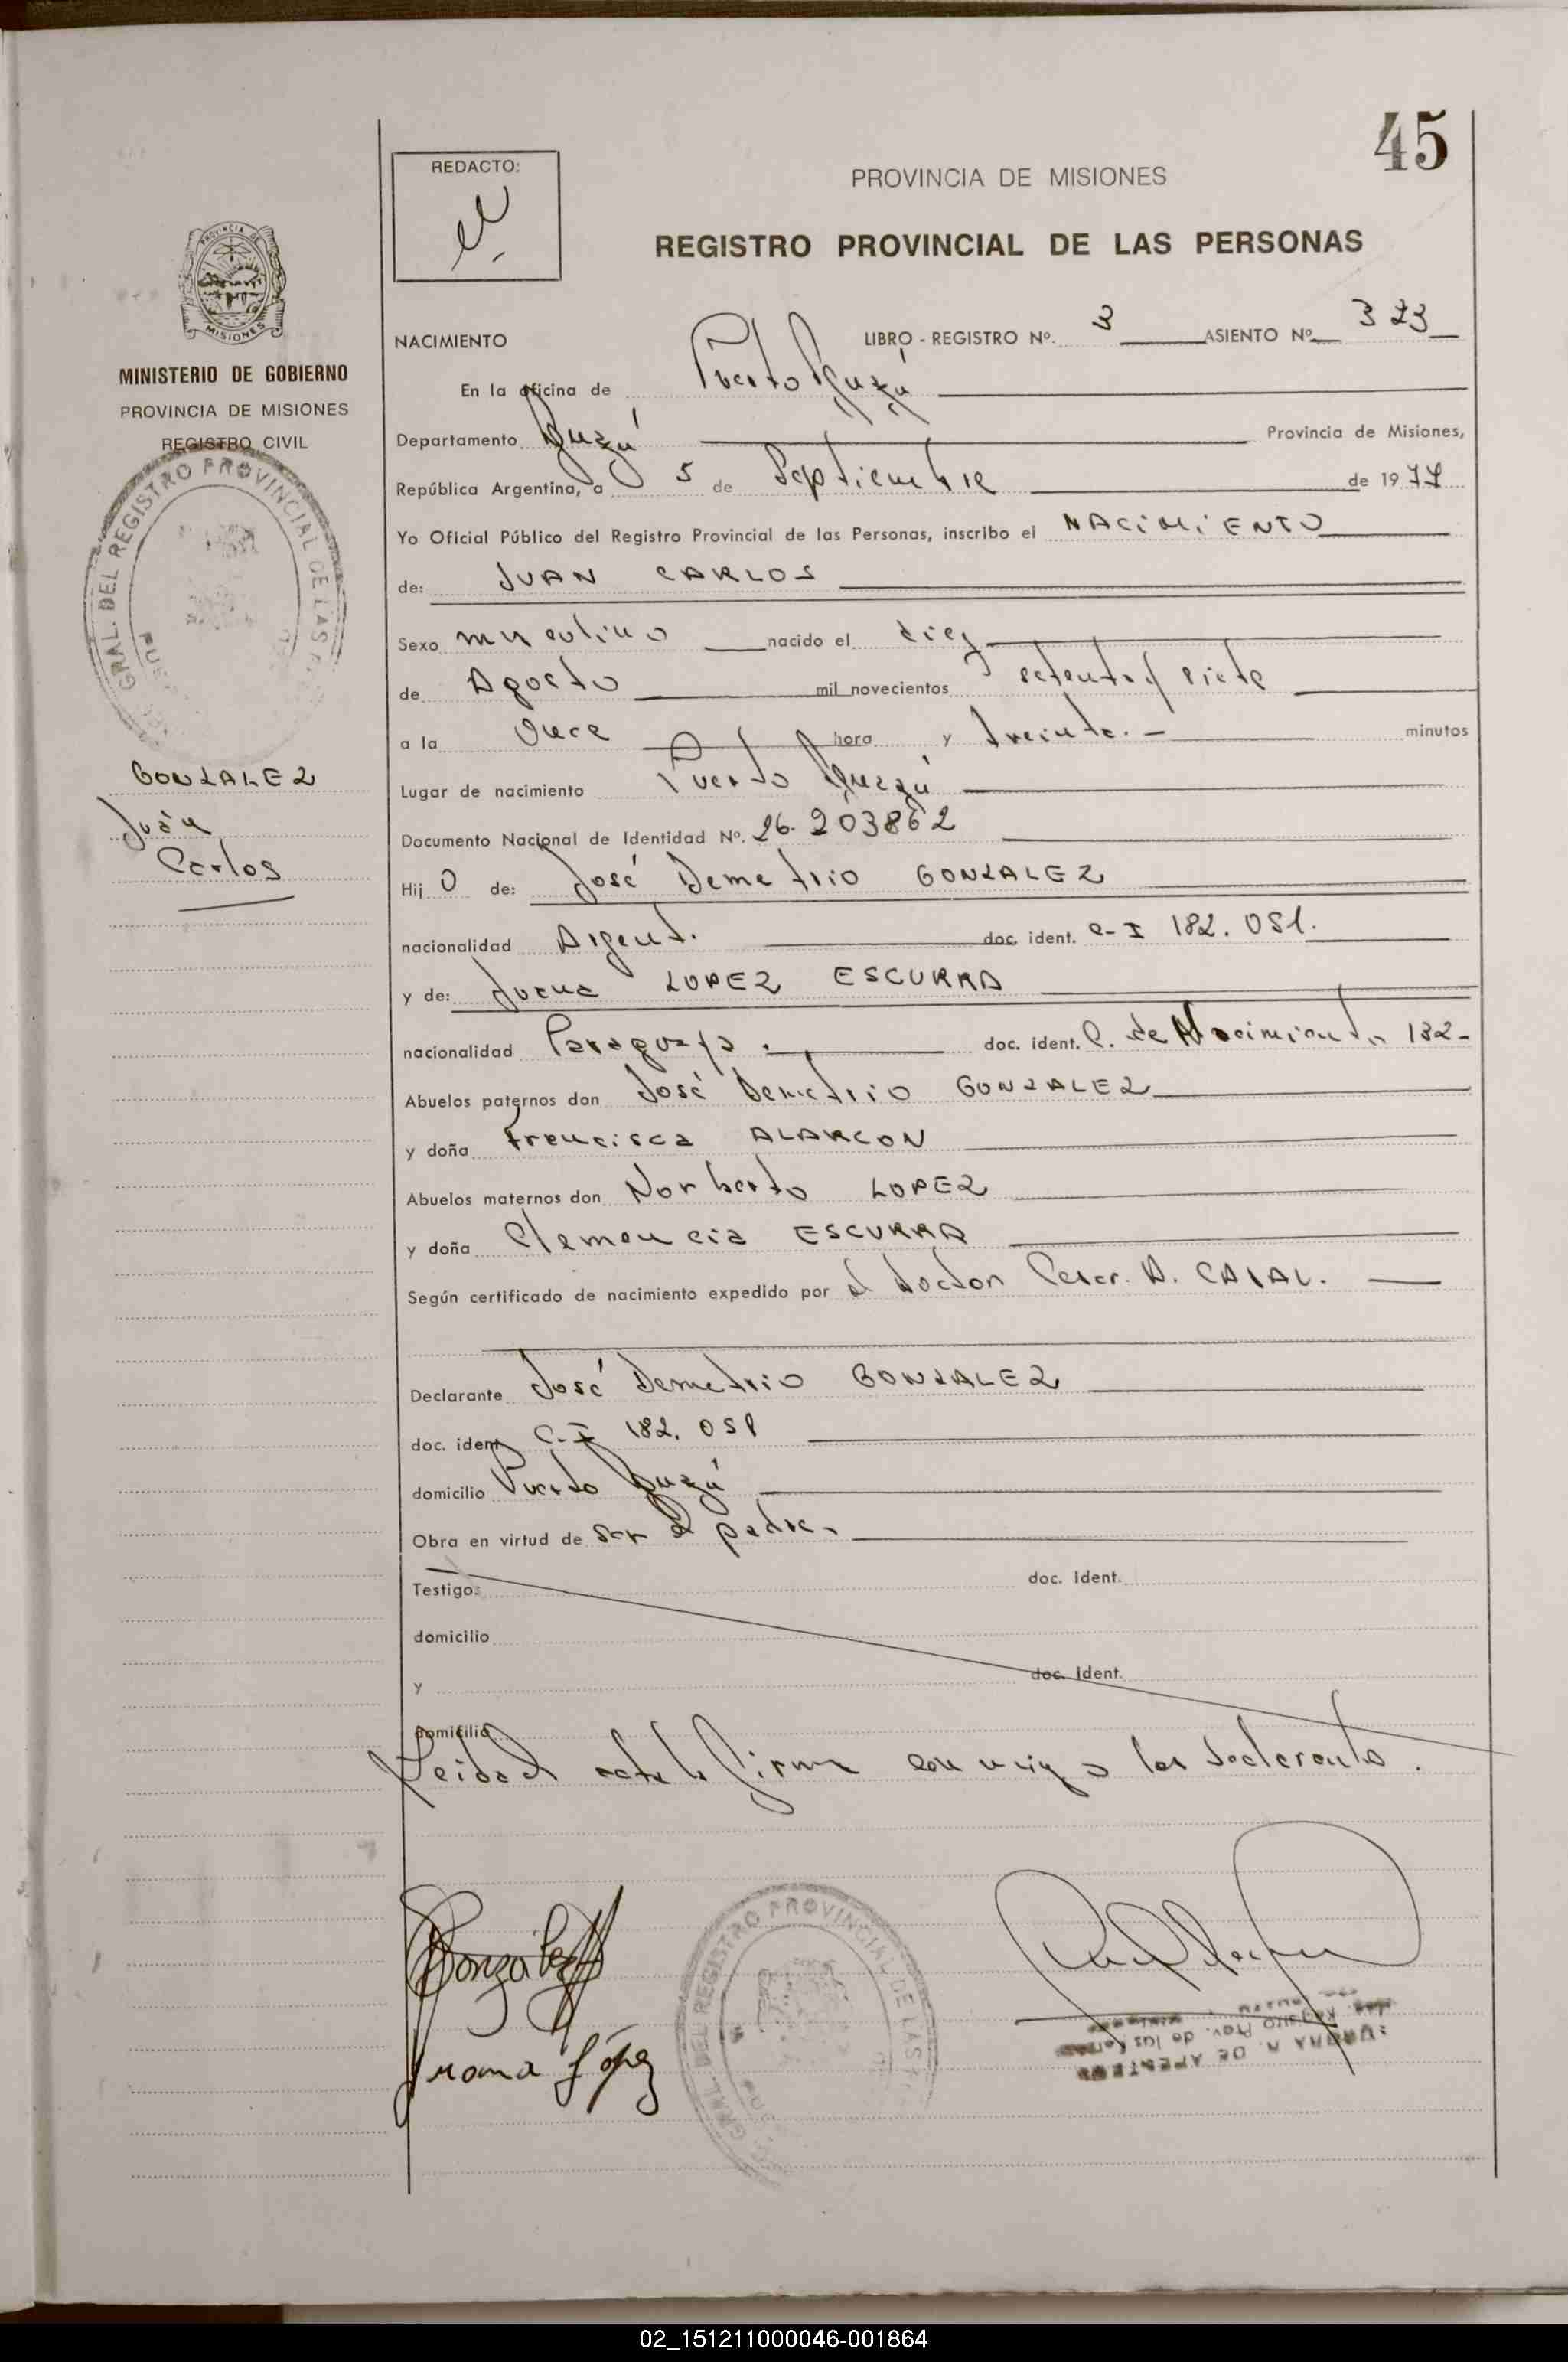 45
REDACTO:
PROVINCIA DE MISIONES
REGISTRO PROVINCIAL DE LAS PERSONAS
PROVINCIA DE
MISIONES
MINISTERIO DE GOBIERNO
PROVINCIA DE MISIONES
REGISTRO CIVIL
GRAL. DEL REGISTRO PROVINCIAL DE LAS
GONZALEZ
Juan
Carlos
NACIMIENTO LIBRO - REGISTRO Nº. 3 ASIENTO Nº 373
En la oficina de Puerto Iguazú
Departamento Iguazú Provincia de Misiones,
República Argentina, a 5 de Septiembre de 1977
Yo Oficial Público del Registro Provincial de las Personas, inscribo el NACIMIENTO
de: JUAN CARLOS
Sexo masculino nacido el diez
de Agosto mil novecientos setenta y siete
a la once hora y treinta.- minutos
Lugar de nacimiento Puerto Iguazú
Documento Nacional de Identidad Nº. 26.203862
Hij o de: José Demetrio GONZALEZ
nacionalidad Argent. doc. ident. C-I 182.051.
y de: Juana LOPEZ ESCURRA
nacionalidad Paraguaya. doc. ident. C. de Nacimiento 132-
Abuelos paternos don José Demetrio GONZALEZ
y doña Francisca ALARCON
Abuelos maternos don Norberto LOPEZ
y doña Clemencia ESCURRA
Según certificado de nacimiento expedido por el doctor A.
Declarante José Demetrio GONZALEZ
doc. ident C-I 182.051
domicilio Puerto Iguazú
Obra en virtud de ser el padre.
Testigo: doc. Ident.
domicilio
y doc. Ident.
domicilio
Leida el acta la firman conmigo los declarante.
González
Juana López
GRAL. DEL REGISTRO PROVINCIAL DE LAS
02_151211000046-001864